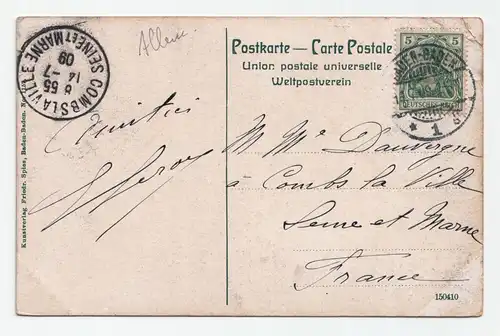 Allem.
Postkarte — Carte Postale
Union postale universelle
Weltpostverein
COMBS LA VILLE
SEINE ET MARNE
8 55
14 -7
09
5 5
DEUTSCHES REICH
BADEN-BADEN
* 1
Amitiés
M. Me Dauvergne
à Combs la Ville
Seine et Marne
France
Kunstverlag Friedr. Spies, Baden-Baden.
150410